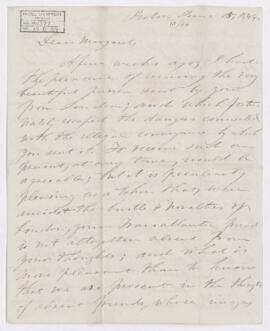 Boston June 18, 1844.
Dear Margaret,
A few weeks ago, I had
the pleasure of receiving the very
beautiful purse sent by you
from London; and which fortu-
nately escaped the dangers connected
with the illegal conveyance by which
you sent it. To receive such a
present, at any time, would be
agreeable; but it is peculiarly
pleasing as a token that, when
amidst the bustle & novelties of
London, your Transatlantic friend
is not altogether absent from
your thoughts; and what is
more pleasant than to know
that we are present in the thoughts
of absent friends, whose images